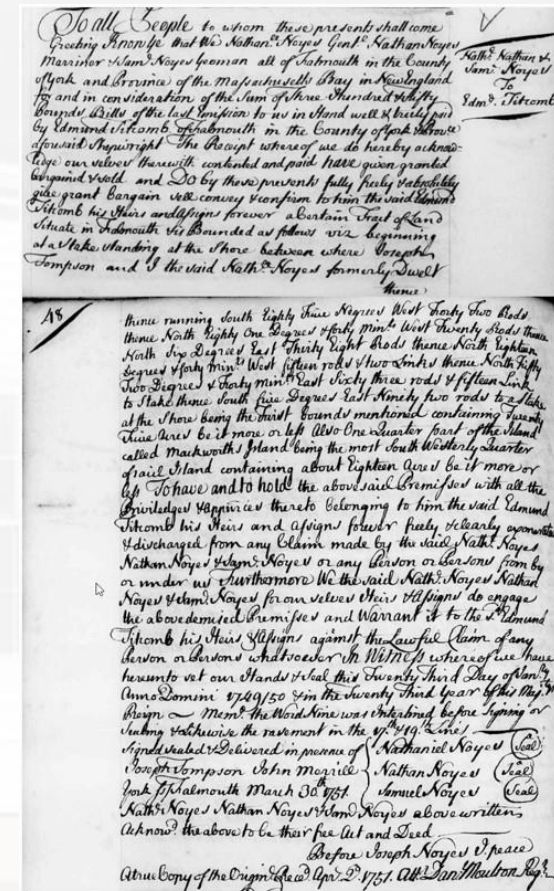 To all People to whom these presents shall come
Greeting Know ye that We Nathan.el Noyes Gent.o Nathan Noyes
Marriner & Sam.l Noyes Yeoman all of Falmouth in the County
of York and Province of the Massachusetts Bay in New England
for and in consideration of the Sum of Three Hundred & fifty
Pounds Bills of the last Emission to us in Hand well & truly paid
by Edmund Titcomb of Falmouth in the County of York & Province
aforesaid Shipwright The Receipt whereof we do hereby acknow-
ledge our selves therewith contented and paid have given granted
bargained & sold and Do by these presents fully freely & absolutely
give grant bargain sell convey & confirm to him the said Edmund
Titcomb his Heirs and Assigns forever a Certain Tract of Land
Situate in Falmouth & is Bounded as follows viz beginning
at a Stake standing at the Shore between where Joseph
Tompson and I the said Nath.l Noyes formerly Dwelt
thence
Nath.l Nathan &
Sam.l Noyes
To
Edm.d Titcomb
48
thence running South Eighty Five Degrees West Forty Two Rods
thence North Eighty One Degrees & forty Min.s West Twenty Rods thence
North Six Degrees East Thirty Eight Rods thence North Eighteen
Degrees & forty Min.s West fifteen rods & two Links thence North Fifty
Two Degrees & Forty Min.s East Sixty three rods & fifteen Link
to Stake thence South five Degrees East Ninety two rods to a Stake
at the Shore being the First bounds mentioned containing Twenty
Five Acres be it more or less Also One Quarter part of the Island
called Mackworths Island being the most South Westerly Quarter
of said Island containing about Eighteen Acres be it more or
less To have and to hold the abovesaid Premisses with all the
Priviledges & appurces thereto belonging to him the said Edmund
Titcomb his Heirs and Assigns forever freely & clearly exonerated
& discharged from any Claim made by the said Nath.l Noyes
Nathan Noyes & Sam.l Noyes or any Person or Persons from by
or under us Furthermore We the said Nath.l Noyes Nathan
Noyes & Sam.l Noyes for our selves Heirs & Assigns do engage
the above demised Premisses and Warrant it to the s.d Edmund
Titcomb his Heirs & Assigns against the Lawful Claim of any
Person or Persons whatsoever In Witness whereof we have
hereunto set our Hands & Seal this Twenty Third Day of Jan.ry
Anno Domini 1749/50 & in the Twenty Third Year of his Maj.tys
Reign Mem.o the Word Nine was Interlined before Signing or
Sealing & Likewise the rasement in the 17.th & 19.th Lines
Signed sealed & Delivered in presence of Nathaniel Noyes (Seal)
Joseph Tompson John Merrill Nathan Noyes (Seal)
York ss Falmouth March 30th 1751. Samuel Noyes (Seal)
Nath.l Noyes Nathan Noyes & Sam.l Noyes above written
Acknow.d the above to be their free Act and Deed
Before Joseph Noyes J. peace
A true Copy of the Origin.l Rece.d Apr. 2.d 1751. Att.r Dan.l Moulton Reg.r